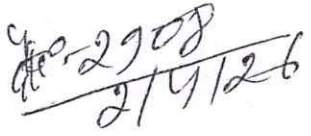 -2908
2/4/26